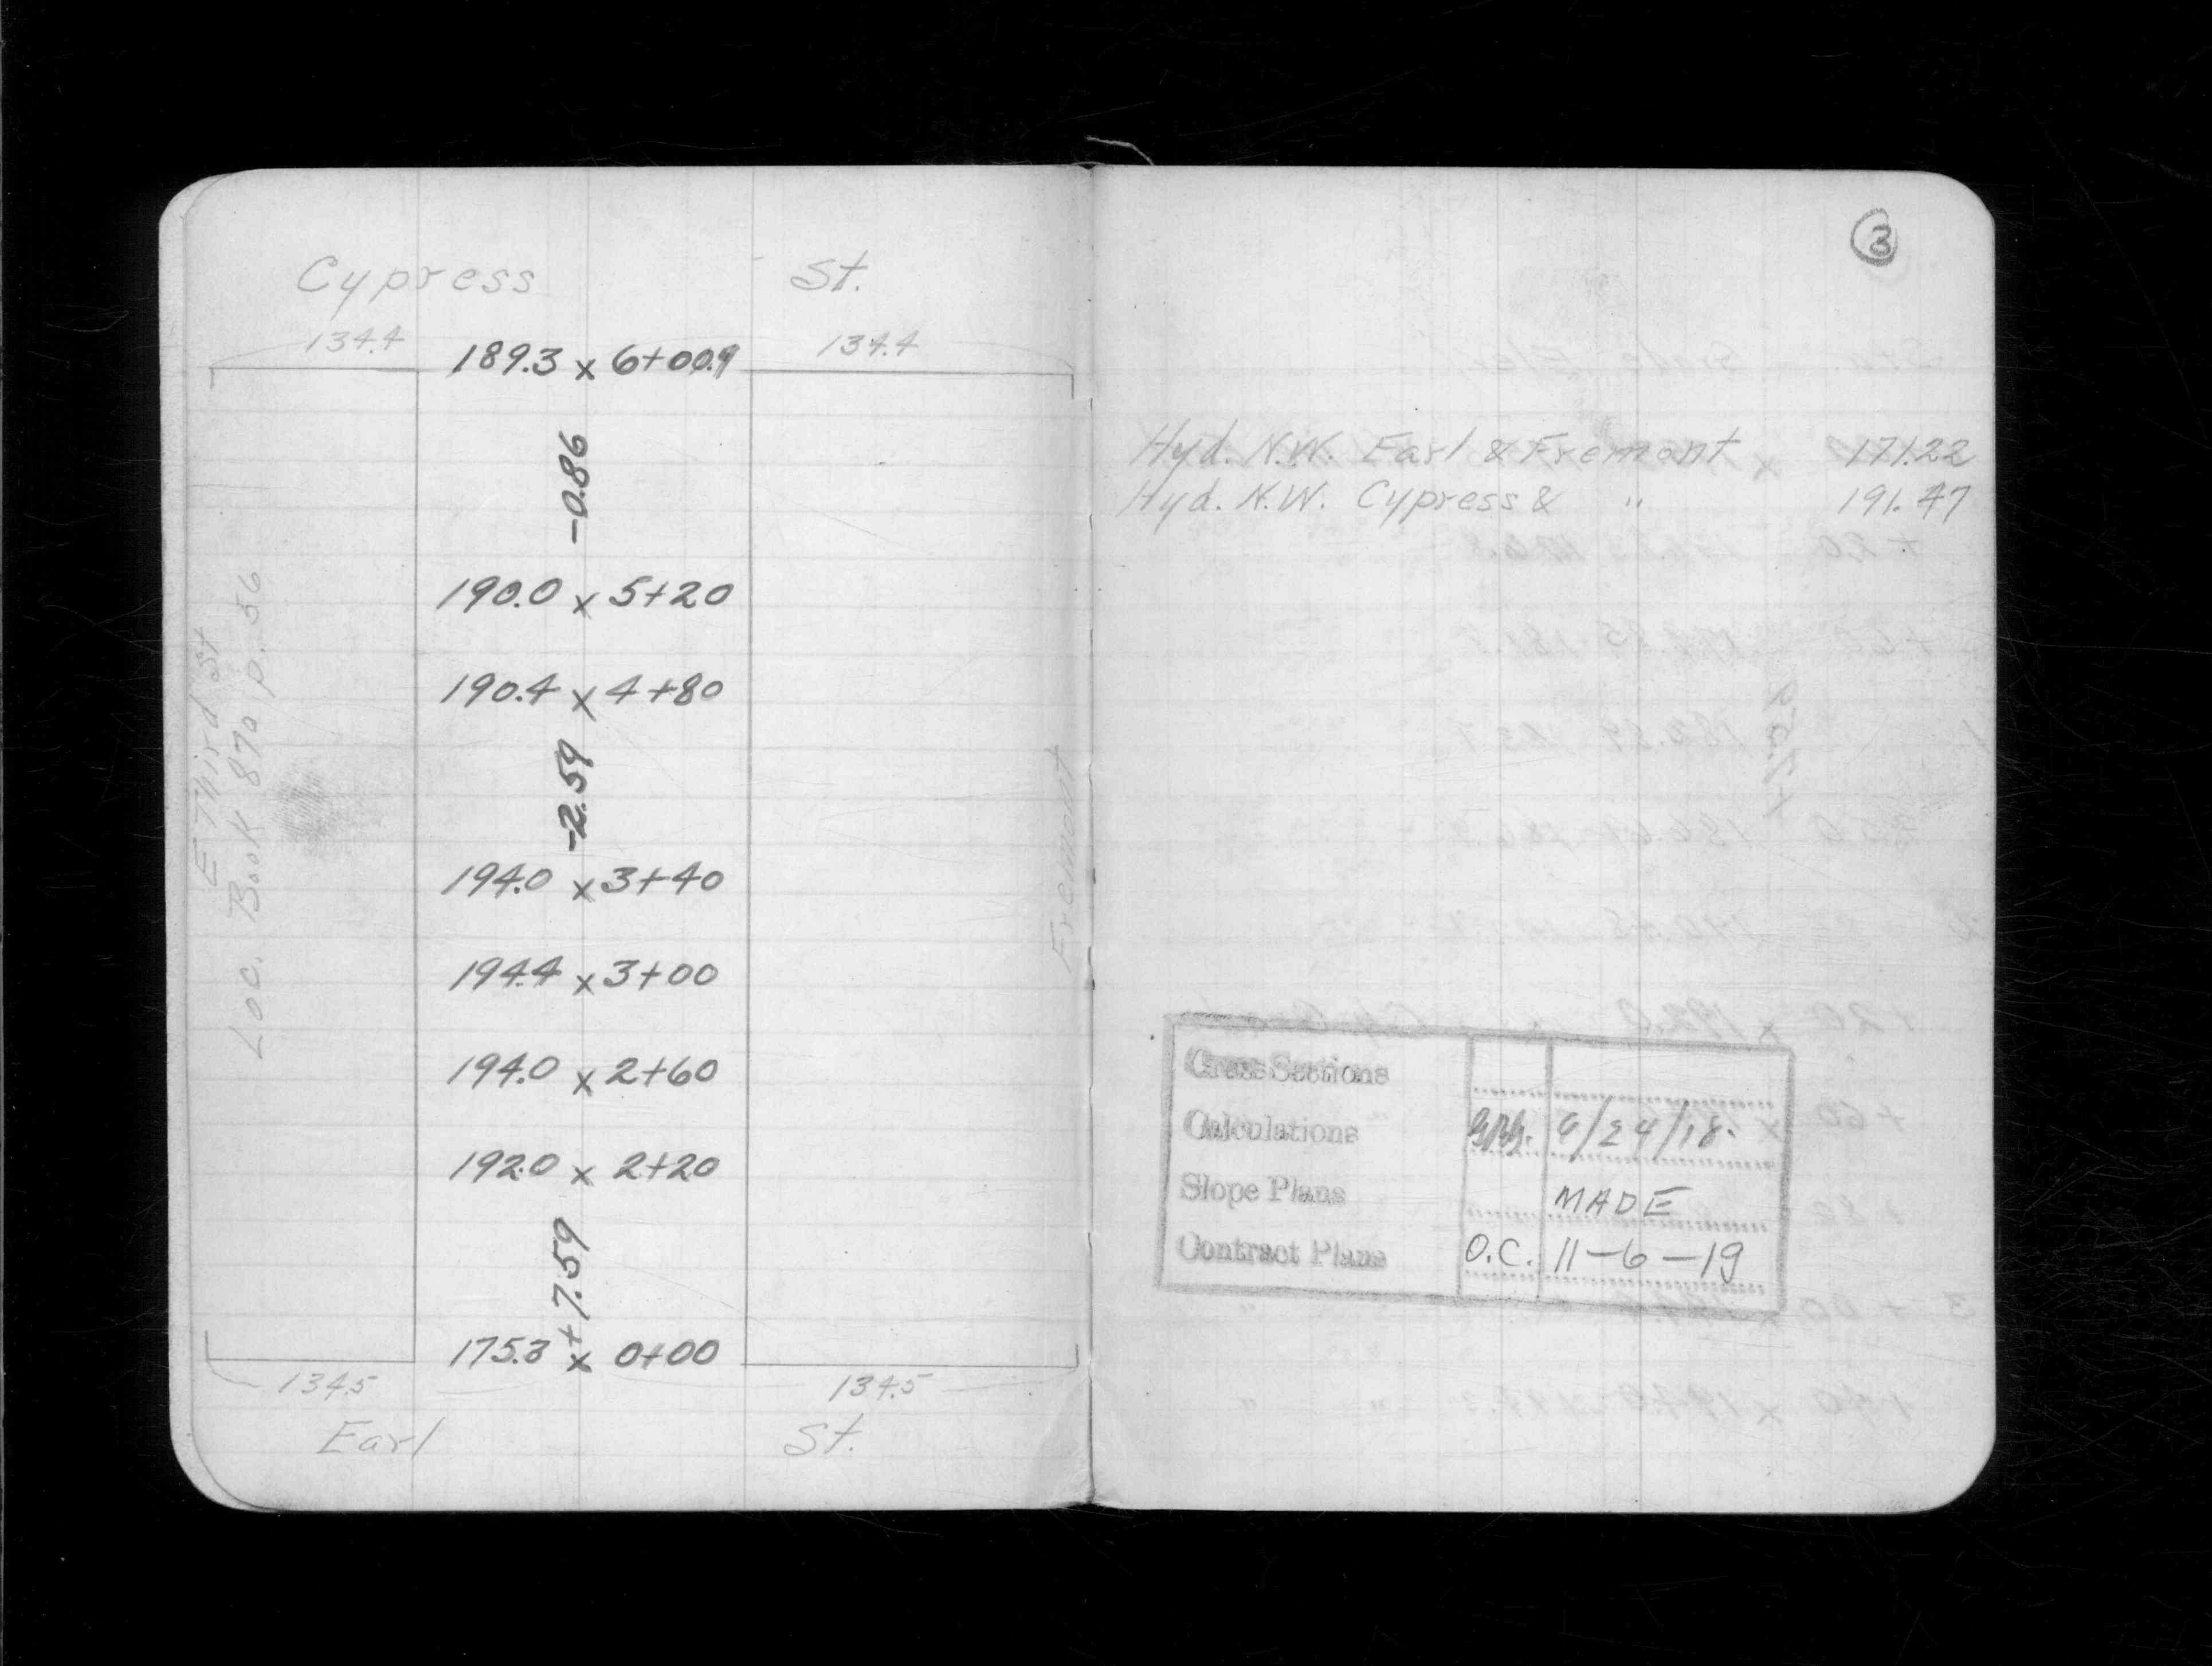 Cypress St.
134.4 189.3 x 6+00.9 134.4
-0.86
190.0 x 5+20
190.4 x 4+80
-2.59
194.0 x 3+40
194.4 x 3+00
194.0 x 2+60
192.0 x 2+20
+7.59
175.3 x 0+00
134.5 134.5
Earl St.
E Third St
Loc. Book 870 p. 56
Fremont
3
Hyd. N.W. Earl & Fremont 171.22
Hyd. N.W. Cypress & " 191.47
Cross Sections
Calculations 9/24/18.
Slope Plans MADE
Contract Plans O.C. 11-6-19